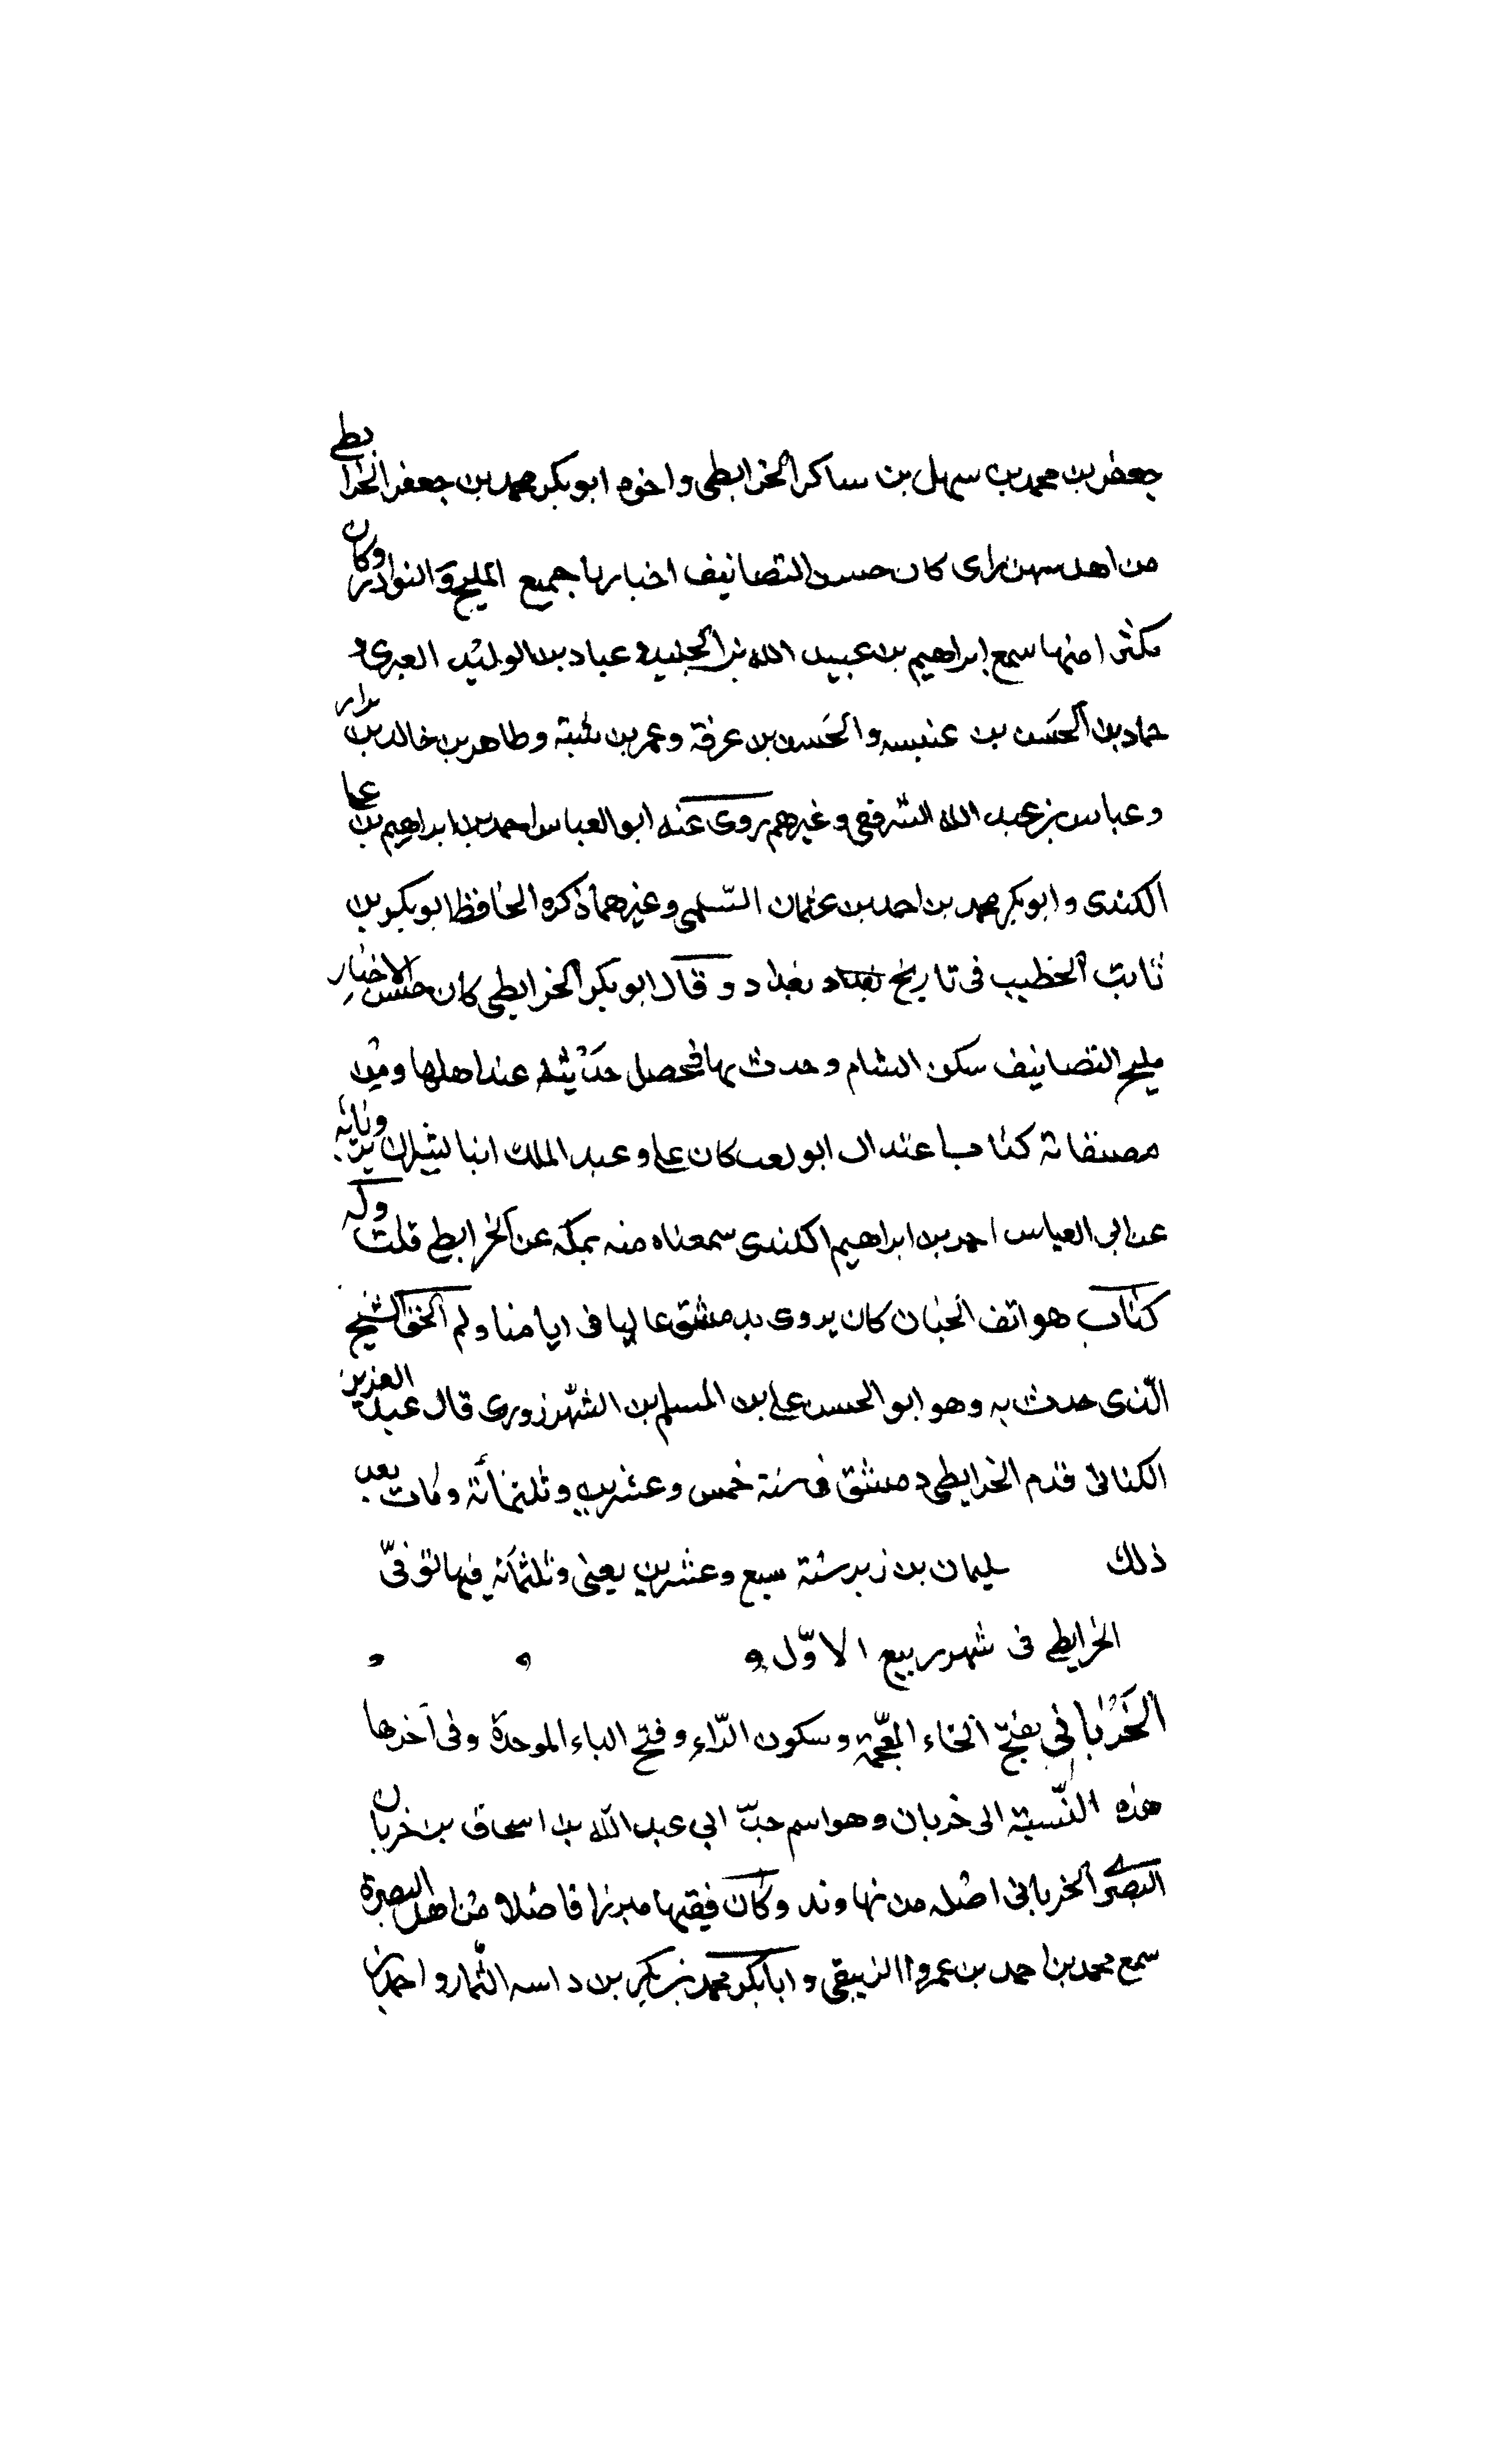 جعفر بن محمد بن سهل بن ساكر الخرابطى واخوه ابو بكر محمد بن جعفر الخرابطي
من اهل سر من راى كان حسن التصانيف اخباريا جميع المليح والنوادر وكان
مكثرا منها سمع ابراهيم بن عبيد الله بن الجنيد و عباد بن الوليد العبرى و
حماد بن الحسن بن عنبسه والحسن بن عرفة وعمر بن شبة وطاهر بن خالد بن نزار
وعباس بن عبد الله الترقفى وغيرهم روى عنه ابو العباس احمد بن ابراهيم بن على
الكندى وابو بكر محمد بن احمد بن عثمان السّلمى وغيرهما ذكره الحافظ ابو بكر بن
ثابت الخطيب فى تاريخ بغداد وقال ابو بكر الخرايطى كان حسن الاخبار
مليح التصانيف سكن الشام وحدث بها فحصل حديثه عند اهلها ومن
مصنفاته كتاب اعتدال ابو كان على وعبد الملك انبا بشران
عن ابى العباس احمد بن ابراهيم الكندى سمعناه منه بمكة عن الخرابطي قلت وله
كتاب هواتف الجنان كان يروى بدمشق عاليا فى ايامنا ولم الحق الشيخ
الّذى حدث به وهو ابو الحسن على بن المسلم بن الشهرزورى قال عبد العزيز
الكتانى قدم الخرايطى دمشق فى سنة خمس وعشرين وثلثمائة ومات بعد
ذلك سليمان بن زبر سنة سبع وعشرين يعنى وثلثمائه فيها توفىّ
الخرايطى فى شهر ربيع الاوّل
الخَرْبانِي بفتح الخاء المعجمة وسكون الرّاء وفتح الباء الموحدة وفى آخرها
هذه النّسبة الى خربان وهو اسم جدّ ابي عبد اللّه بن اسحاق بن خربان
البصرى الخربانى اصله من نهاوند وكان فقيها مبرزا فاضلا من اهل البصرة
سمع محمد بن احمد بن عمروا الزيبقى وابا بكر محمد بن بكر بن داسه التّمار واحمد بن